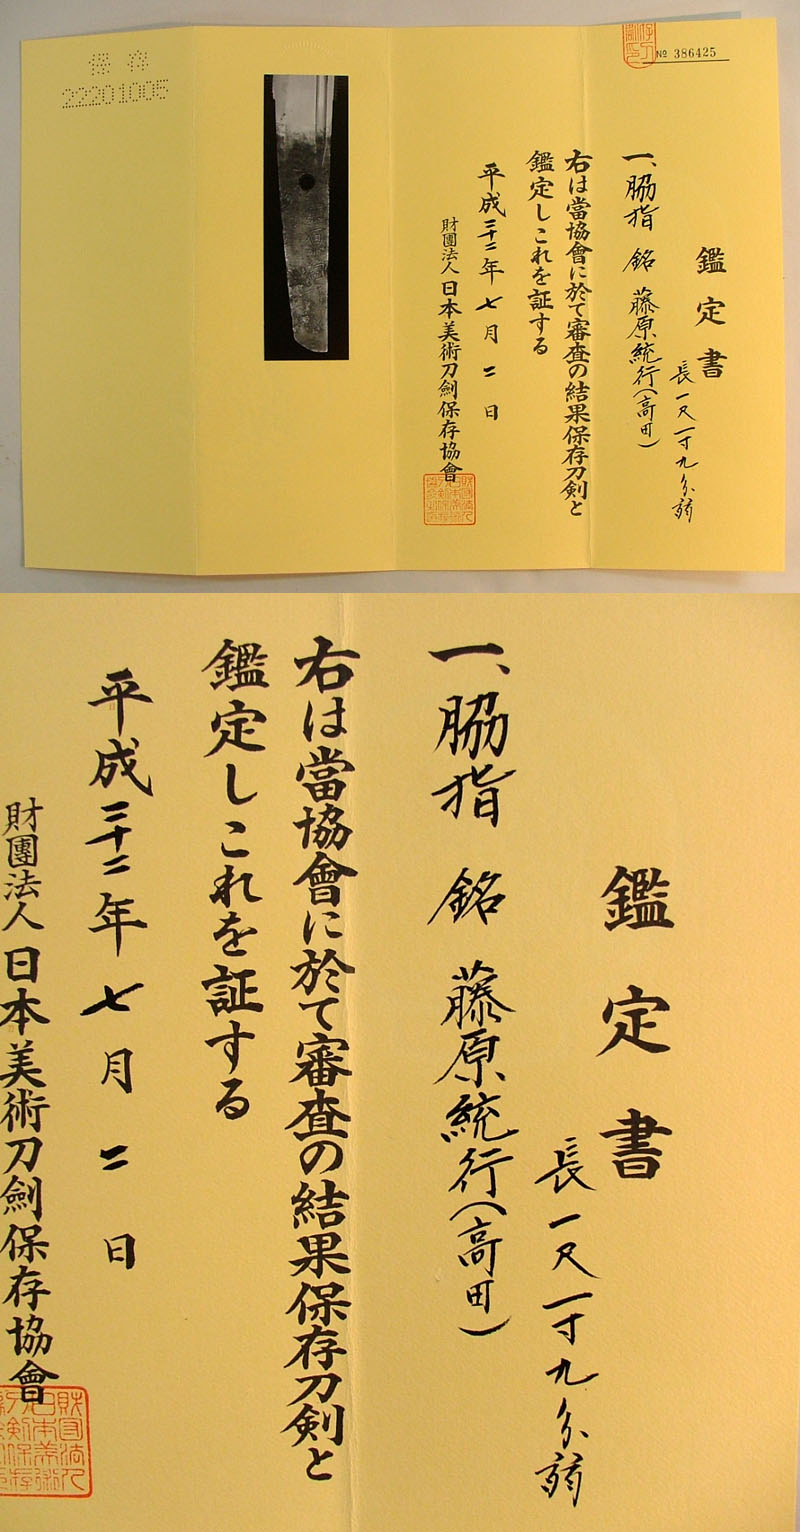 № 386425
鑑定書
長一尺一寸九分弱
一、脇指 銘 藤原統行(高田)
右は當協會に於て審査の結果保存刀剣と
鑑定しこれを証する
平成二十二年七月二日
財團法人日本美術刀劍保存協會
保存
22201005
鑑定書
長一尺一寸九分弱
一、脇指 銘 藤原統行(高田)
右は當協會に於て審査の結果保存刀剣と
鑑定しこれを証する
平成二十二年七月二日
財團法人日本美術刀劍保存協會